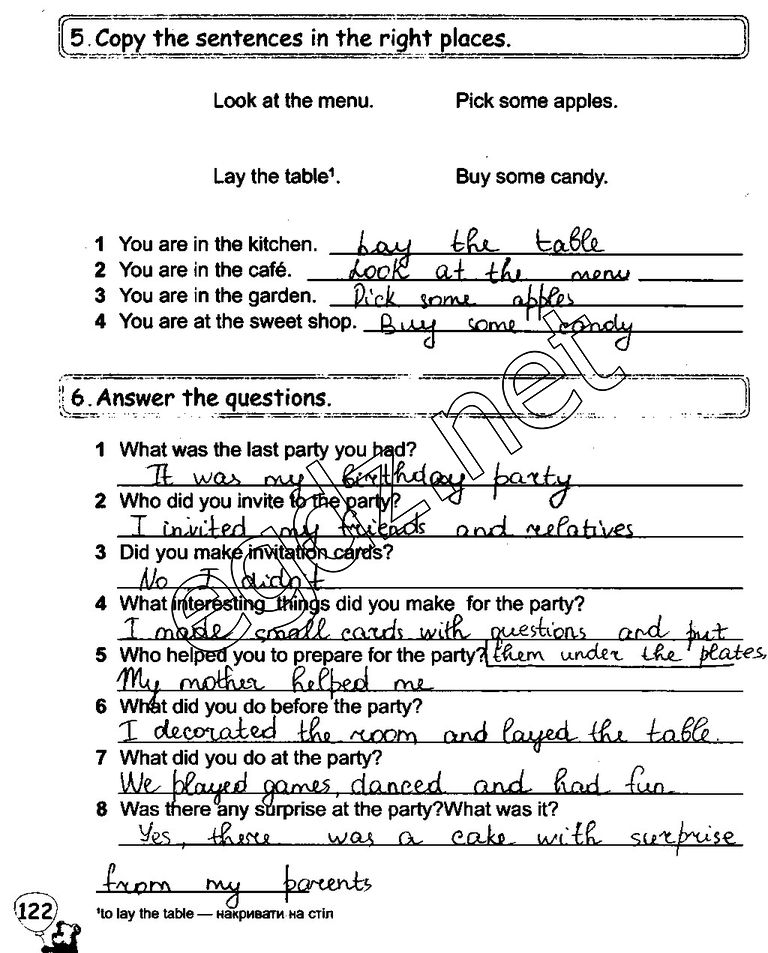 5. Copy the sentences in the right places.
Look at the menu. Pick some apples.
Lay the table¹. Buy some candy.
1 You are in the kitchen. Lay the table
2 You are in the café. Look at the menu
3 You are in the garden. Pick some apples
4 You are at the sweet shop. Buy some candy
6. Answer the questions.
1 What was the last party you had?
It was my birthday party
2 Who did you invite to the party?
I invited my friends and relatives
3 Did you make invitation cards?
No I didn't
4 What interesting things did you make for the party?
I made small cards with questions and put
5 Who helped you to prepare for the party? them under the plates,
My mother helped me
6 What did you do before the party?
I decorated the room and layed the table.
7 What did you do at the party?
We played games, danced and had fun.
8 Was there any surprise at the party?What was it?
Yes, there was a cake with surprise
from my parents
122
¹to lay the table — накривати на стіл
egdz.net